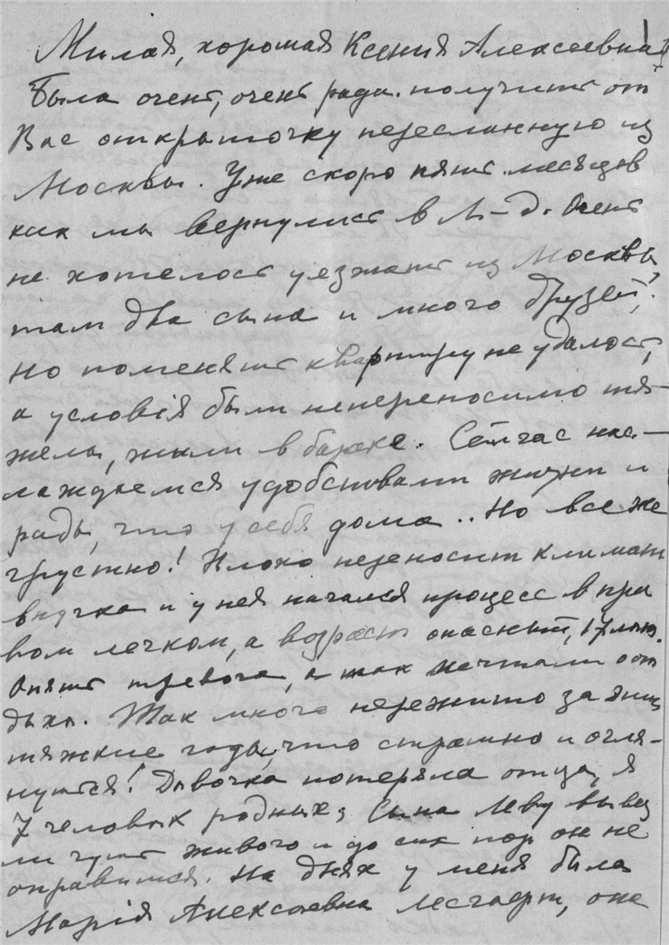 Милая, хорошая Ксения Алексеевна!
Была очень, очень рада получить от
Вас открыточку пересланную из
Москвы. Уже скоро пять месяцев
как мы вернулись в Л-д. Очень
не хотелось уезжать из Москвы
там два сына и много друзей,
но поменять квартиру не удалось,
а условія были непереносимо тя-
желы, жили в бараке. Сейчас нас-
лаждаемся удобствами жизни и
рады, что у себя дома.. Но все же
грустно! Плохо переносит климат
внучка и у нея начался процесс в пра
вом легком, а возраст опасный, 17 лет.
Опять тревога, а так мечтали от
дыха. Так много пережито за эти
тяжкие года, что страшно и огля-
нуться! Дѣвочка потеряла отца, я
7 человѣк родных, сына Леву вывез
ли чуть живого и до сих пор он не
оправился. На днях у меня была
Марія Алексеевна Лесгафт, она